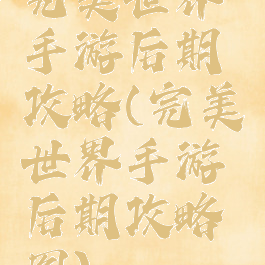 完美世界
手游后期
攻略(完美
世界手游
后期攻略
图)